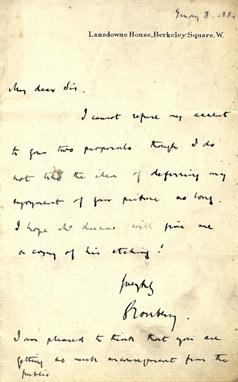 May 3. 188
Lansdowne House, Berkeley Square, W.
My dear Sir.
I cannot refuse my assent
to your two proposals though I do
not like the idea of deferring my
enjoyment of your picture so long.
I hope he will give me
a copy of his etching!
Rosebery.
I am pleased to think that you are
getting so much encouragement from the
public